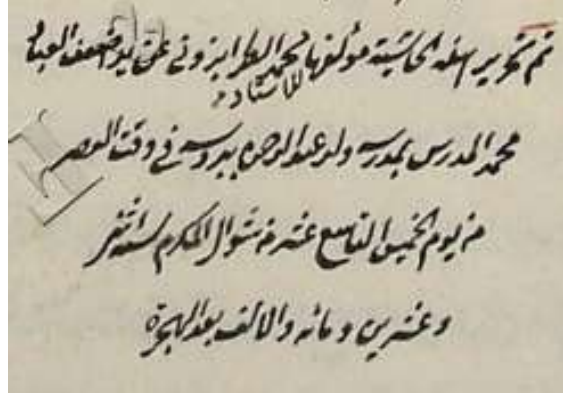 تم تحرير هذه الحاشية مؤلفها محمد الطرابزوني عن يد اضعف العباد
للاستاذ
محمد المدرس بمدرسه ولد عبد الرحمن ببروسه في وقت العصر
من يوم الخميس التاسع عشر من شوال المكرم لسنه
وعشرين ومائه والالف بعد الهجرة